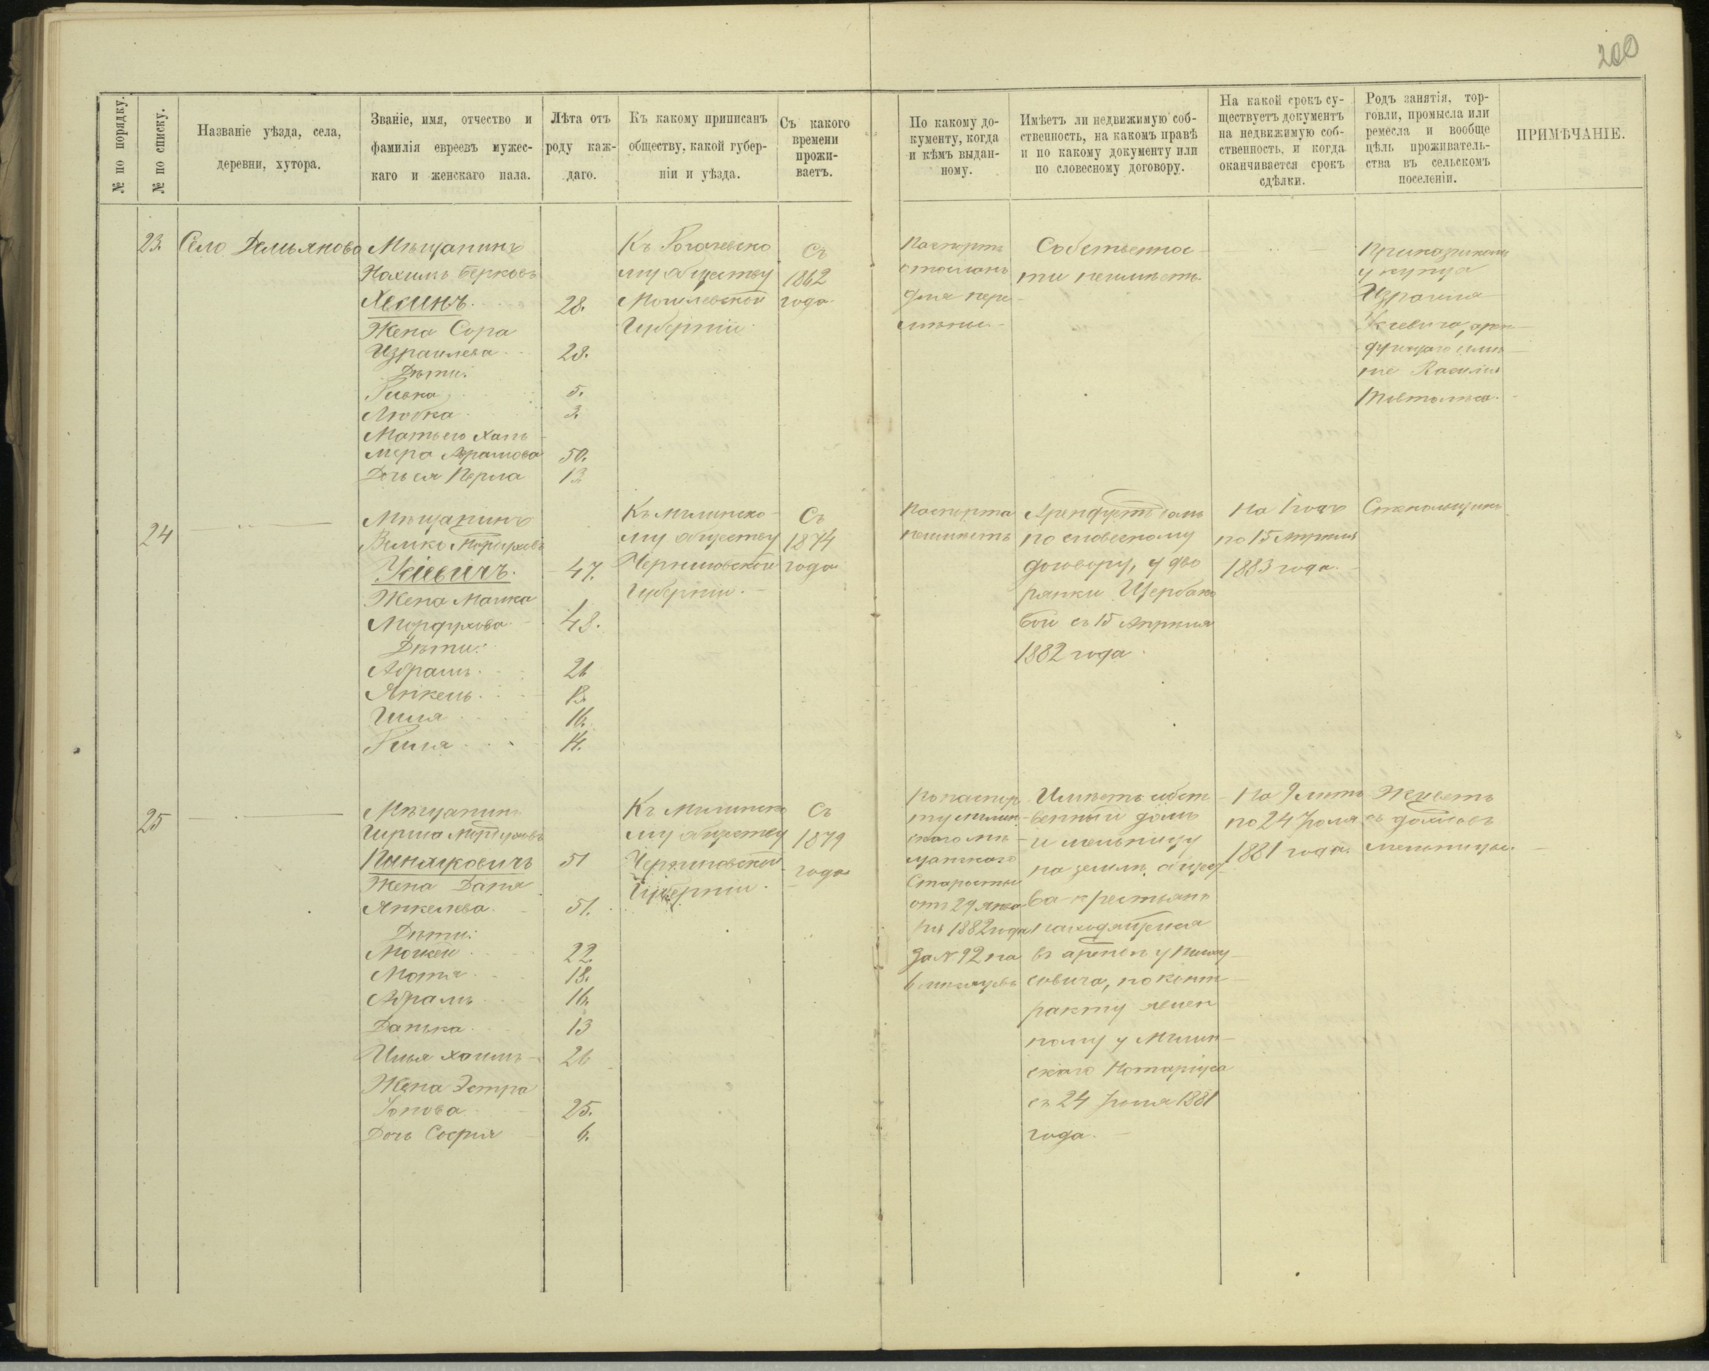 200
№ по порядку.
№ по списку.
Названіе уѣзда, села,
деревни, хутора.
Званіе, имя, отчество и
фамилія евреевъ мужес-
каго и женскаго пала.
Лѣта отъ
роду каж-
даго.
Къ какому приписанъ
обществу, какой губер-
ніи и уѣзда.
Съ какого
времени
прожи-
ваетъ.
По какому до-
кументу, когда
и кѣмъ выдан-
ному.
Имѣетъ ли недвижимую соб-
ственность, на какомъ правѣ
и по какому документу или
по словесному договору.
На какой срокъ су-
ществуетъ документъ
на недвижимую соб-
ственность, и когда
оканчивается срокъ
сдѣлки.
Родъ занятія, тор-
говли, промысла или
ремесла и вообще
цѣль проживатель-
ства въ сельскомъ
поселеніи.
ПРИМѢЧАНІЕ.
23.
Село Демьяново
Мѣщанинъ
Нахимъ Берковъ
Хесинъ 28.
Жена Сора
Израилева 28.
Дѣти:
Ривка 5.
Любка 3.
Мать его Хая
Мера Абрамова 50.
Дочь ея Перла 12
Къ Рогачевско
му обществу
Могилевской
Губерніи
Съ
1862
года
Паспортъ
отосланъ
для пере
мѣны
Собственнос
ти неимѣетъ
Прикащикомъ
у купца
Израиля
24
Мѣщанинъ
Вилко Мордуховъ
Усіевичъ. 47.
Жена Машка
Мордухова 48.
Дѣти:
Абрамъ 21
Янкель 18.
Гиля 16.
Риля 14.
Къ Мглинско
му обществу
Черниговской
Губерніи.
Съ
1874
года
Паспорта
неимѣетъ
Арендуетъ домъ
по словесному
договору, у дво
рянки Щербако
вой съ 15 Апрѣля
1882 года
На 1 годъ
по 15 Апрѣля
1883 года.
Стекольщикъ
25
Мѣщанинъ
Гирша Мордуховъ
51
Жена Даня
Янкелева 51.
Дѣти:
Мошей 22
Мотя 18.
Абрамъ 16.
Данька 13
Илья Хаимъ 26
Жена Эстра
25.
Дочь Софія 6.
Къ Мглинско
му обществу
Черниговской
Губерніи.
Съ
1879
года
По паспор
ту Мглин
скаго мѣ
щанскаго
Старосты
отъ 29 Янва
ря 1882 года
за № 92 на
6 мѣсяцевъ
Имѣетъ собст
венный домъ
и мельницу
на землѣ общес
ва крестьянъ
находящуюся
въ арендѣ у
совича, по конт
ракту
ному у Мглин
скаго Нотаріуса
съ 24 Іюля 1881
года.
На 9 лѣтъ
по 24 Іюля
1881 года.
Живетъ
съ доходовъ
мельницы.